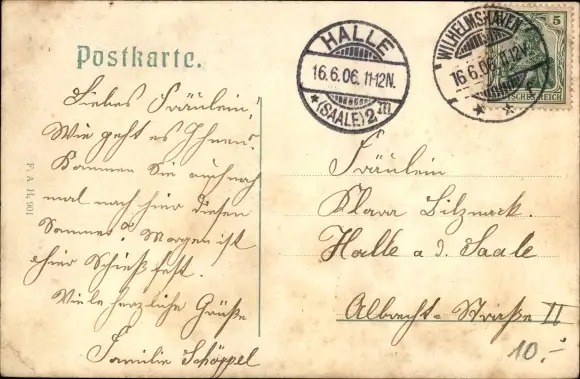 Postkarte.
HALLE
16.6.06. 11-12N.
* (SAALE) 2 m
WILHELMSHAVEN
16.6.06. 11-12V.
* *
5
DEUTSCHES REICH
Liebes Fräulein!
Wie geht es Ihnen?
Kommen Sie auch noch
mal nach hier diesen
Sommer? Morgen ist
hier Schießfest.
Viele herzliche Grüße
Familie Schöppel
F. A. H. 901
Fräulein
Klara Bilznack.
Halle a d. Saale
Albrecht-Straße II
10.-